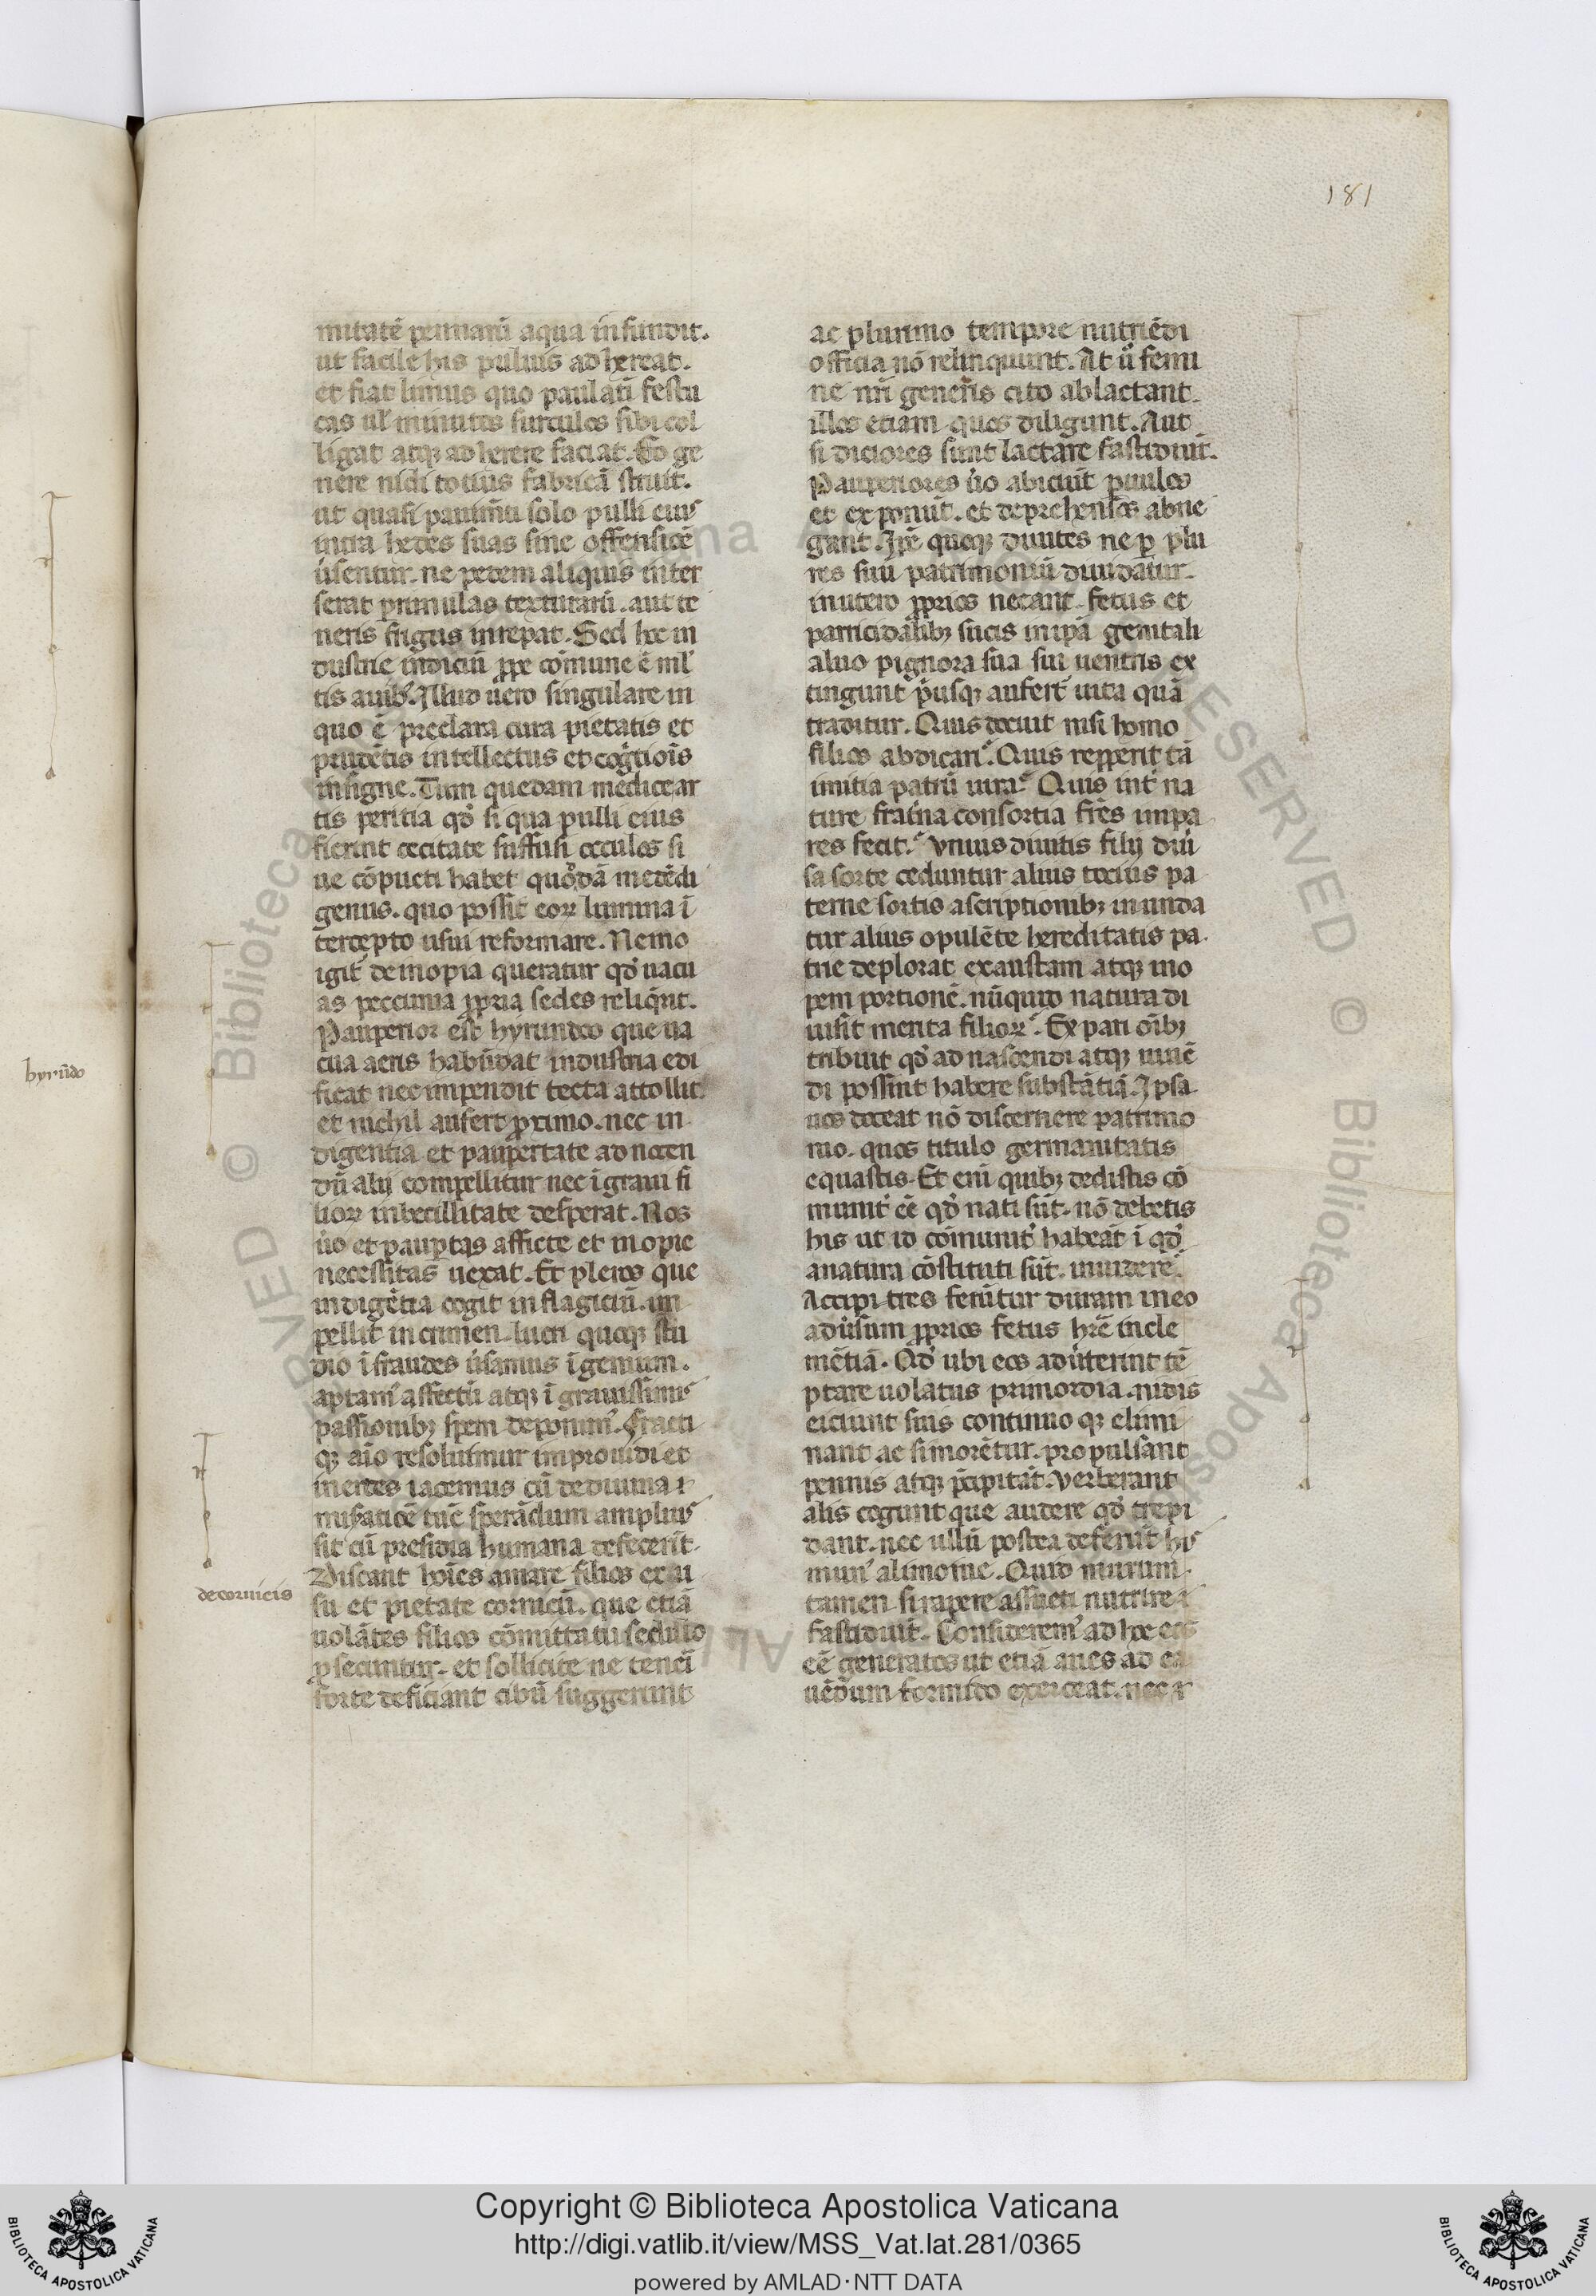 181
mitatē pennarū aqua infundit.
ut facile his puluis adhereat.
et fiat limus quo paulatī festu
cas ul' minutos surculos sibi col
ligat atq; adherere faciat. Eo ge
nere nidi totius fabricā struit.
ut quasi pauimēti solo pulli eius
intra hedes suas sine offensione
ūsentur. ne pedem aliquis inter
serat primulas texturarū. aut te
neris frigus inrepat. Sed hoc in
dustrie indiciū ꝓpe cōmune ē ml'
tis auib'. Illud uero singulare in
quo ē preclara cura pietatis et
prudētis intellectus et cogītiōis
insigne. Tum quedam medice ar
tis peritia qd' si qua pulli eius
fierint cecitate suffusi oculos si
ue cōpucti habet quōdā medēdi
genus. quo possit eoꝝ lumina ī
tercepto usui reformare. Nemo
igit' de inopia queratur qd' uacu
as peccunia ꝓpria sedes reliqrīt.
Pauperior est hyrundo que ua
cua aeris habūdat industria edi
ficat nec impendit tecta attollit
et nichil aufert ꝓximo. nec in
digentia et paupertate ad nocen
dū alij compellitur nec ī graui fi
lioꝝ inbecillitate desperat. Nos
ūo et pauptas afficit et inopie
necessitas uexat. Et pleros que
indigētia cogit in flagiciū. im
pellit in crimen. lucri quoq; stu
dio ī fraudes ūsamus īgenium.
aptam' affectū atq; ī grauissimis
passionib; spem deponim'. Fracti
q; aīo resoluimur improuidi et
inertes iacemus cū de diuina
misatiōe tūc sperādum amplius
sit cū presidia humana defecerīt.
Discant hoīes amare filios ex u
su et pietate cornicū. que etiā
uolātes filios cōmittatu sedulo
ꝓsecuntur. et sollicite ne tencī
forte deficiant cibū suggerunt
ac plurimo tempore nutriēdi
officia nō relinquunt. At ū femi
ne nrī generis cito ablactant.
illos etiam quos diligunt. Aut
si diciores sunt lactare fastidiūt.
Pauperiores ūo abiciūt paruulos
et exponūt. et deprehensos abne
gant. Ipē quoq; diuites ne p plu
res suū patrimoniū diuidatur.
in utero ꝓprios necant. fetus et
parricidalib; sucis in ipā genitali
aluo pignora sua sui uentris ex
tingunt pusq; aufert' uita quā
traditur. Quis docuit nisi homo
filios abdicari? Quis repperit tā
imitia patrū iura? Quis int' na
ture frat'na consortia frēs impa
res fecit? Vnius diuitis filij diui
sa sorte ceduntur alius tocius pa
terne sortis ascriptionib; inunda
tur alius opulēte hereditatis pa
trie deplorat exaustam atq; ino
pem portionē. nūquid natura di
uisit merita filioꝝ? Ex pari oīb;
tribuit qd' ad nascendi atq; uiuē
di possint habere substātiā. Ipsa
uos doceat nō discernere patrimo
nio. quos titulo germanitatis
equastis. Et enī quib; dedistis cō
munit' eē qd' nati sūt. nō debetis
his ut id cōmunit' habeāt ī qd'
a natura cōstituti sūt. inuidere.
Accipitres ferūtur duram in eo
adūsum ꝓprios fetus hrē incle
mētiā. Qd' ubi eos aduīterint tē
ptare uolatus primordia. nidis
eiciunt suis continuo q; elimi
nant ac si morētur. propulsant
pennis atq; pcipitāt. verberant
alis cogunt que audere qd' trepi
dant. nec ullū postea deferūt his
mun' alimonie. Quid mirum.
tamen. si rapere assueti nutrire
fastidiūt. Considerem' ad hoc eos
eē generatos ut etiā aues ad ca
uēdum formido exerceat. nec
hyrūdo
de cornicis
Copyright © Biblioteca Apostolica Vaticana
http://digi.vatlib.it/view/MSS_Vat.lat.281/0365
powered by AMLAD·NTT DATA